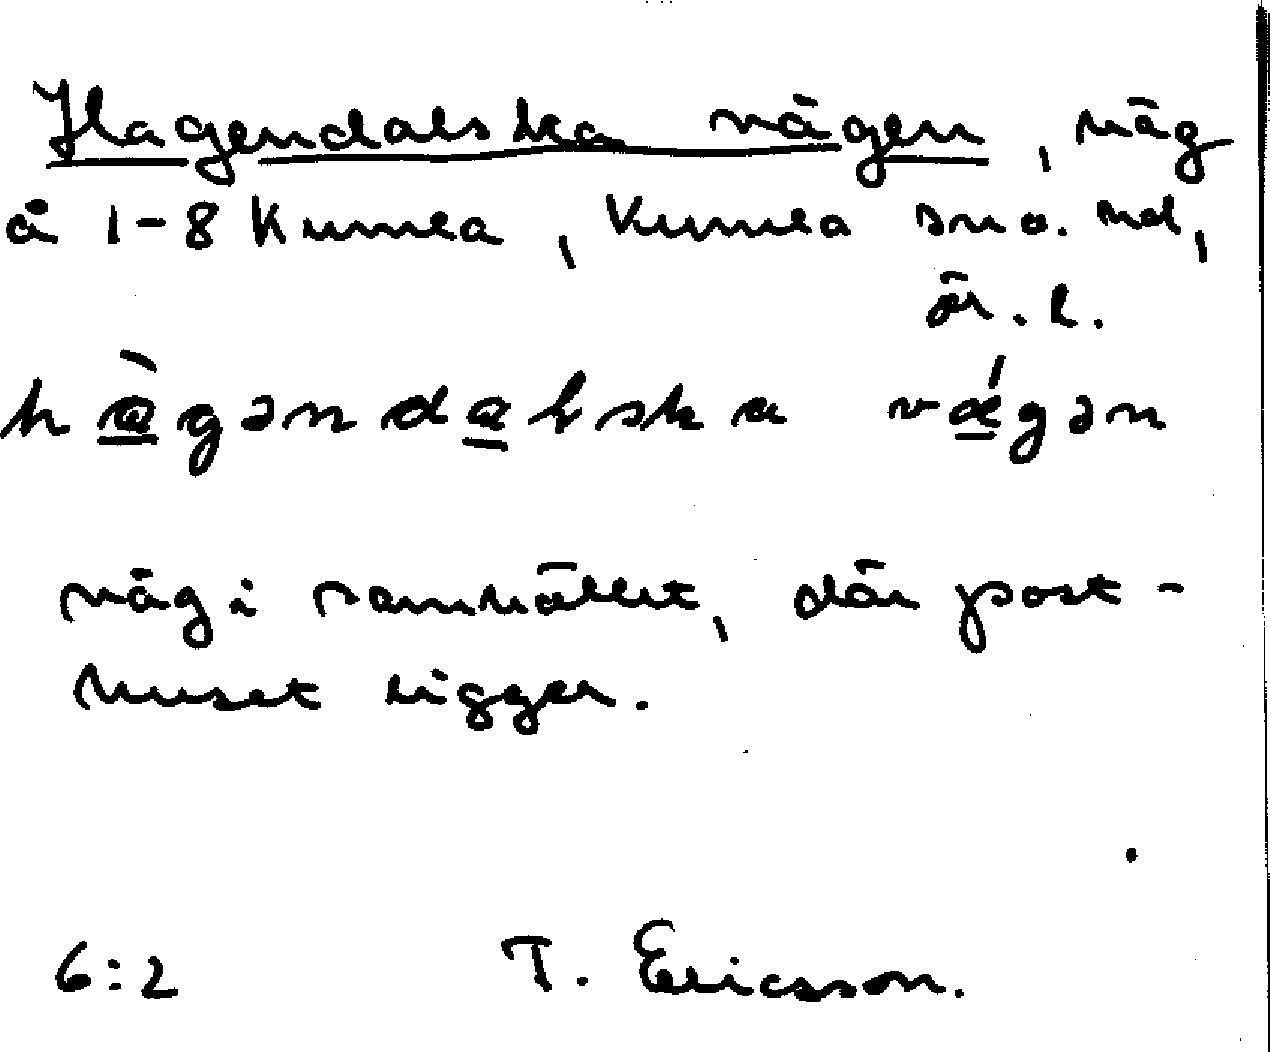 Hagendalska vägen, väg
å 1-8 Kumla, Kumla sn o. hd,
ör. l.
hàgəndalska vǽgən
väg i samhället, där post-
huset ligger.
6:2 T. Ericsson.